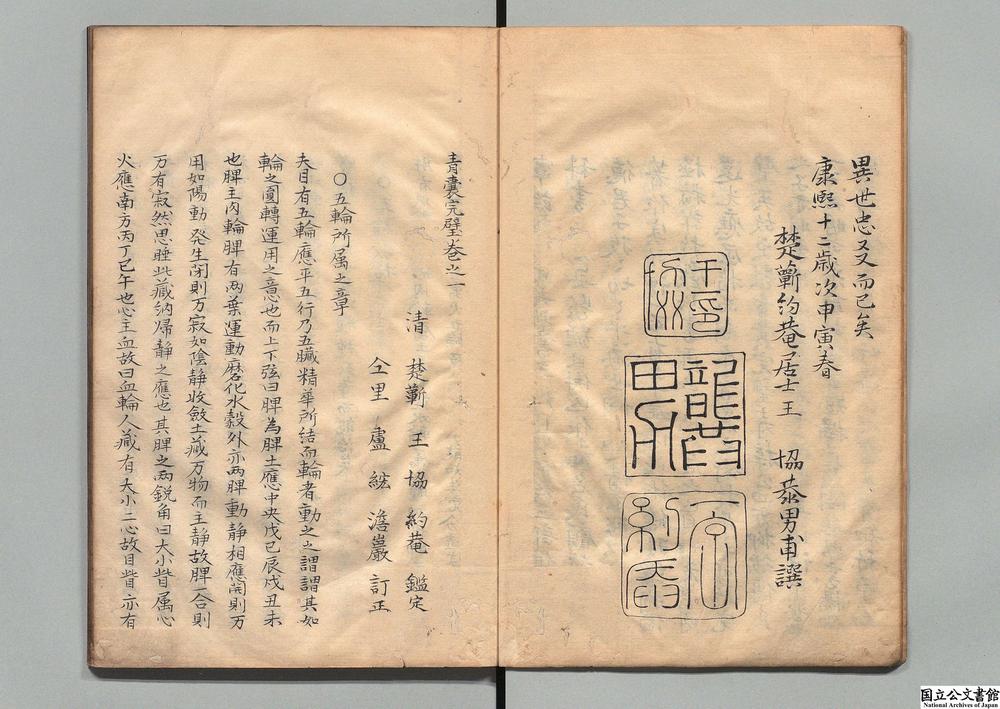 異世忠又又而已矣
康熙十二歳次申寅春
楚蘄約菴居士王　協恭男甫譔
青囊完璧卷之一
清　楚蘄　王　協　約菴　鑑定
仝里　盧　綋　澹巖　訂正
〇五輪所属之章
夫目有五輪應乎五行乃五臓精華所結而輪者動之之謂謂其如
輪之圓轉運用之意也而上下弦曰脾為脾土應中央戊己辰戌丑未
也脾主肉輪脾有両葉運動磨化水穀外亦両脾動静相應開則万
用如陽動發生閉則万寂如陰静收斂土藏万物而主静故脾一合則
万有寂然思睡此藏納帰静之應也其脾之両鋭角曰大小眥属心
火應南方丙丁巳午也心主血故曰血輪人藏有大小二心故目眥亦有
国立公文書館
National Archives of Japan